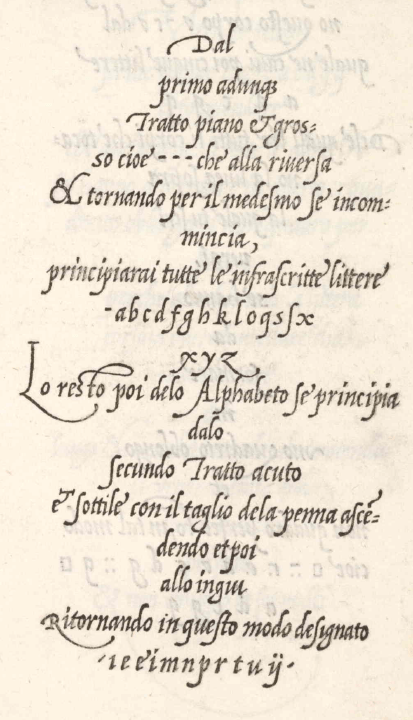 Dal
primo adunqꝫ
Tratto piano & gros=
so cioe - - - che alla riversa
& tornando per il medesmo se incom=
mincia,
principiarai tutte le infrascritte littere
-abcdfghkloqsſx
xyz
Lo resto poi delo Alphabeto se principia
dalo
secundo Tratto acuto
e sottile con il taglio dela penna ascē=
dendo et poi
allo ingiu
Ritornando in questo modo designato
·ieeimnprtuÿ·